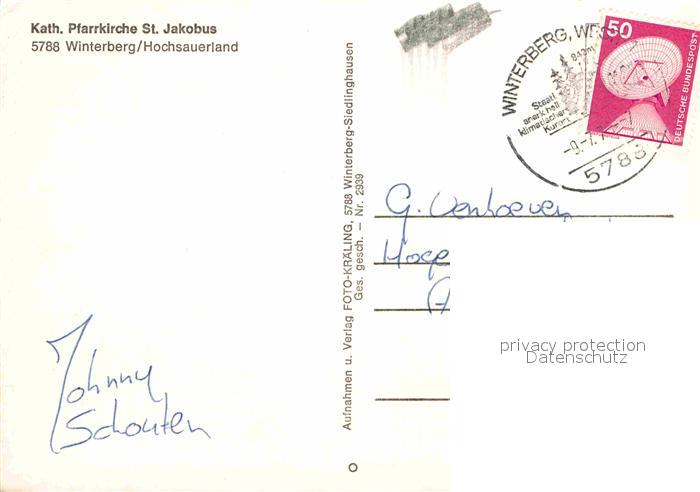 Kath. Pfarrkirche St. Jakobus
5788 Winterberg/Hochsauerland
Aufnahmen u. Verlag FOTO-KRÄLING, 5788 Winterberg-Siedlinghausen
Ges. gesch. — Nr. 2939
WINTERBERG,
843m
Staatl.
anerk. heil-
klimatischer
Kurort
5788
50
DEUTSCHE BUNDESPOST
G. Venhoeven
Johnny
Schouten
privacy protection
Datenschutz